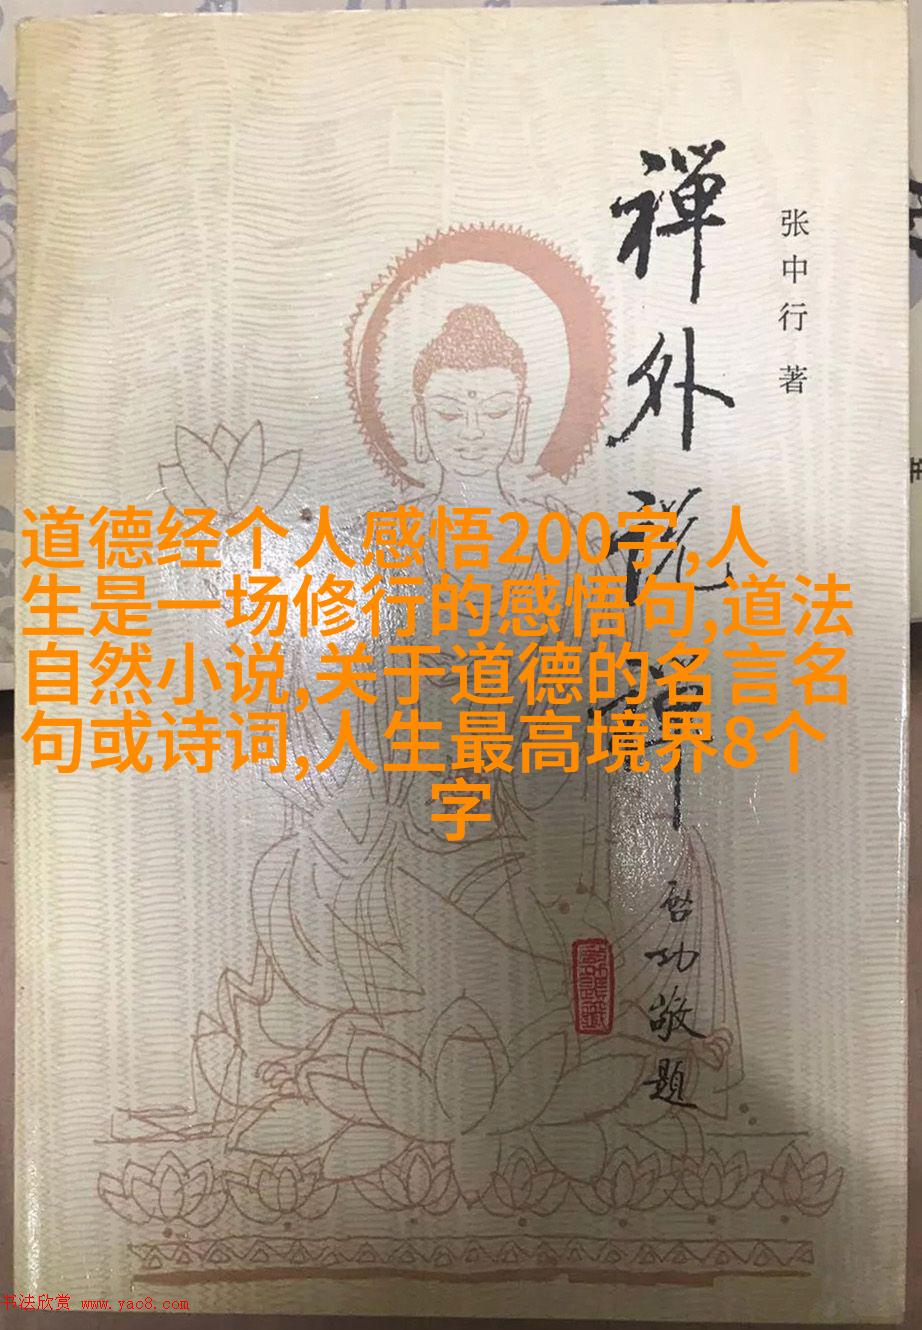 禪外说禅
张中行 著
道德经个人感悟200字,人
生是一场修行的感悟句,道法
自然小说,关于道德的名言名
句或诗词,人生最高境界8个
字
启功敬题
书法欣赏 www.yac8.com